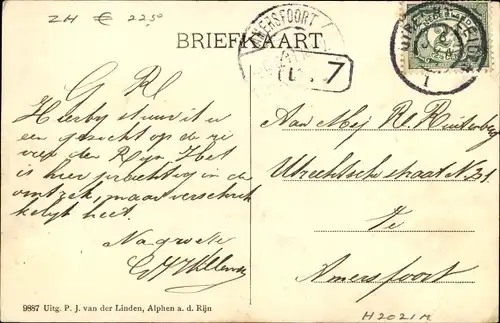 ZH € 22.50
AMERSFOORT
BRIEFKAART
7
G R!
Hierbij stuur ik u
een gezicht op de ri
vier den Rijn Het
is hier prachtig in de
omtrek, maar verschrik
kelijk heet.
Na groete
Aan Mej R. Ruitenberg
Utrechtschestraat N.31
Te
Amersfoort
9887 Uitg. P. J. van der Linden, Alphen a. d. Rijn
H2021M